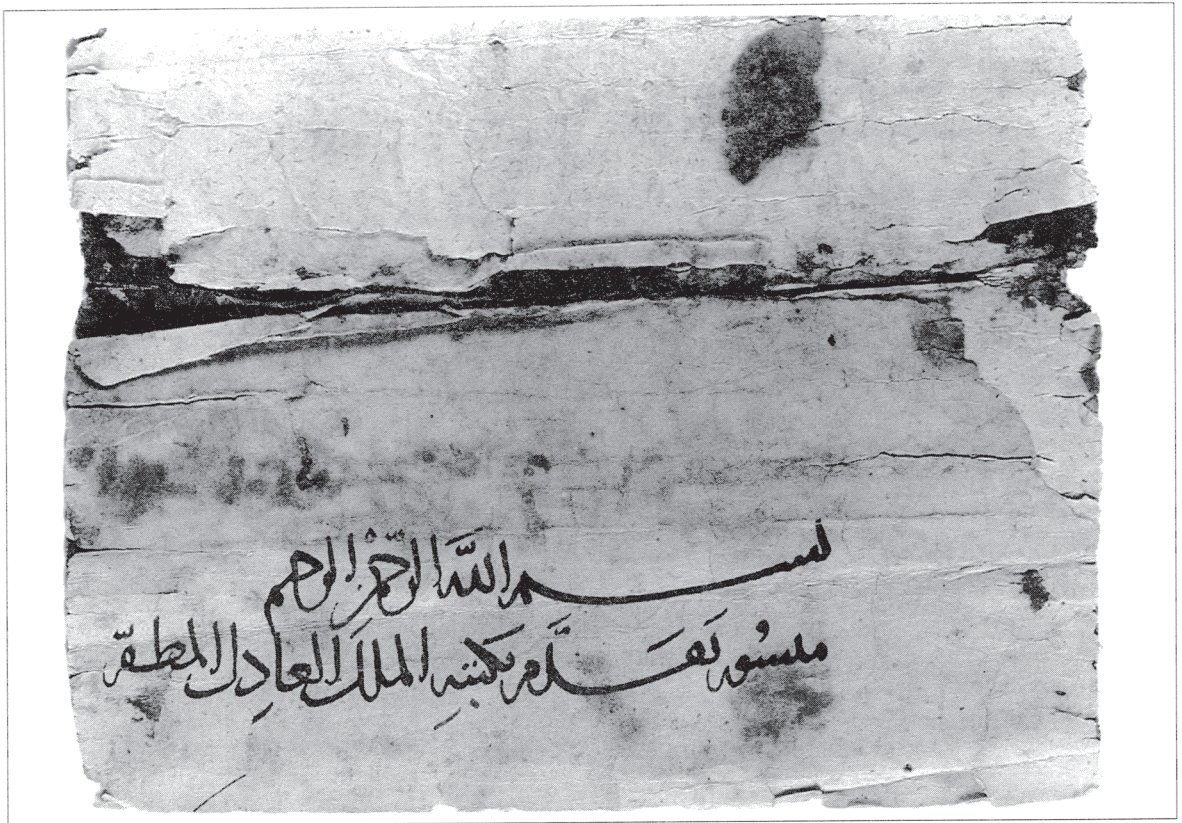 بسم الله الرحمن الرحيم
منشور تقدم بكتبه الملك العادل المظفر